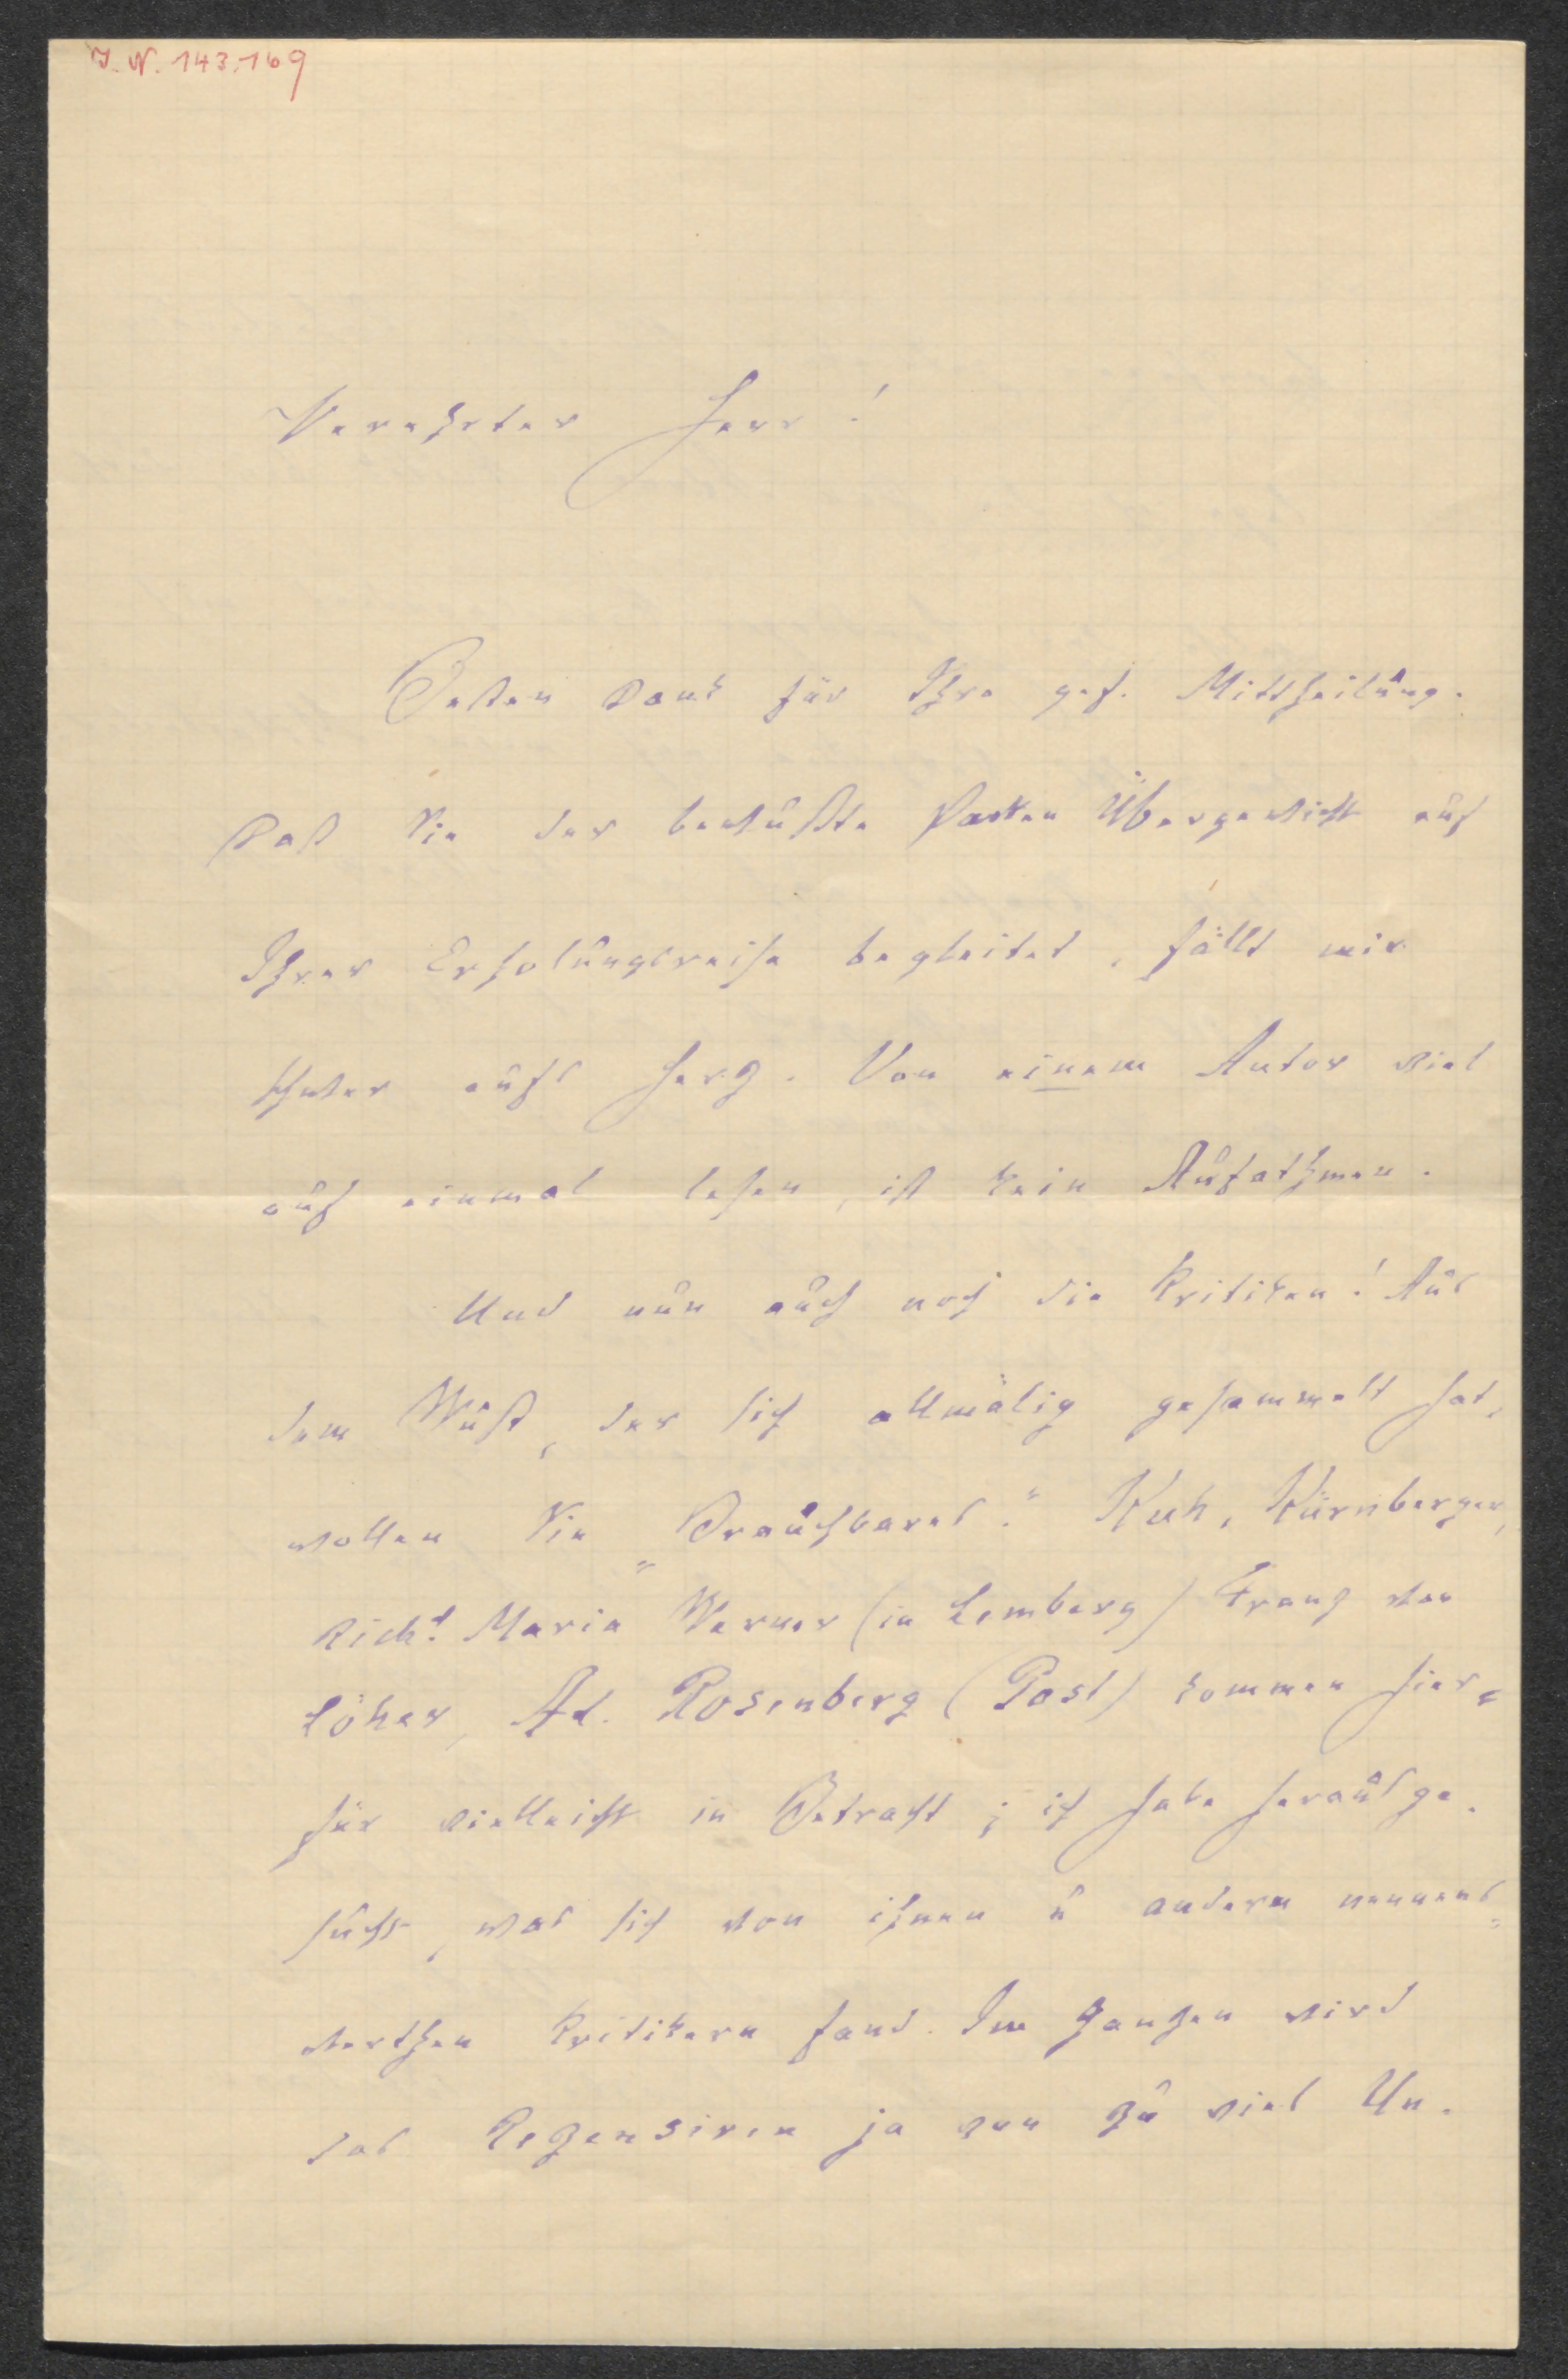 I. N. 143.169
Verehrter Herr!
Besten Dank für Ihre gef. Mittheilung.
Daß Sie der bewußte Packen Übergewicht auf
Ihrer Erholungsreise begleitet, fällt mir
schwer aufs Herz. Von einem Autor viel
auf einmal lesen, ist kein Aufathmen.
Und nun auch noch die Kritiken! Aus
dem Wust, der sich allmälig gesammelt hat,
wollen Sie „Brauchbares." Kuh, Kürnberger,
Richd. Maria Werner (in Lemberg) Franz von
Löher, Ad. Rosenberg (Post) kommen hier=
für vielleicht in Betracht; ich habe herausge-
sucht, was sich von ihnen u andern nennens=
werthen Kritikern fand. Im Ganzen wird
das Rezensiren ja von zu viel Un-